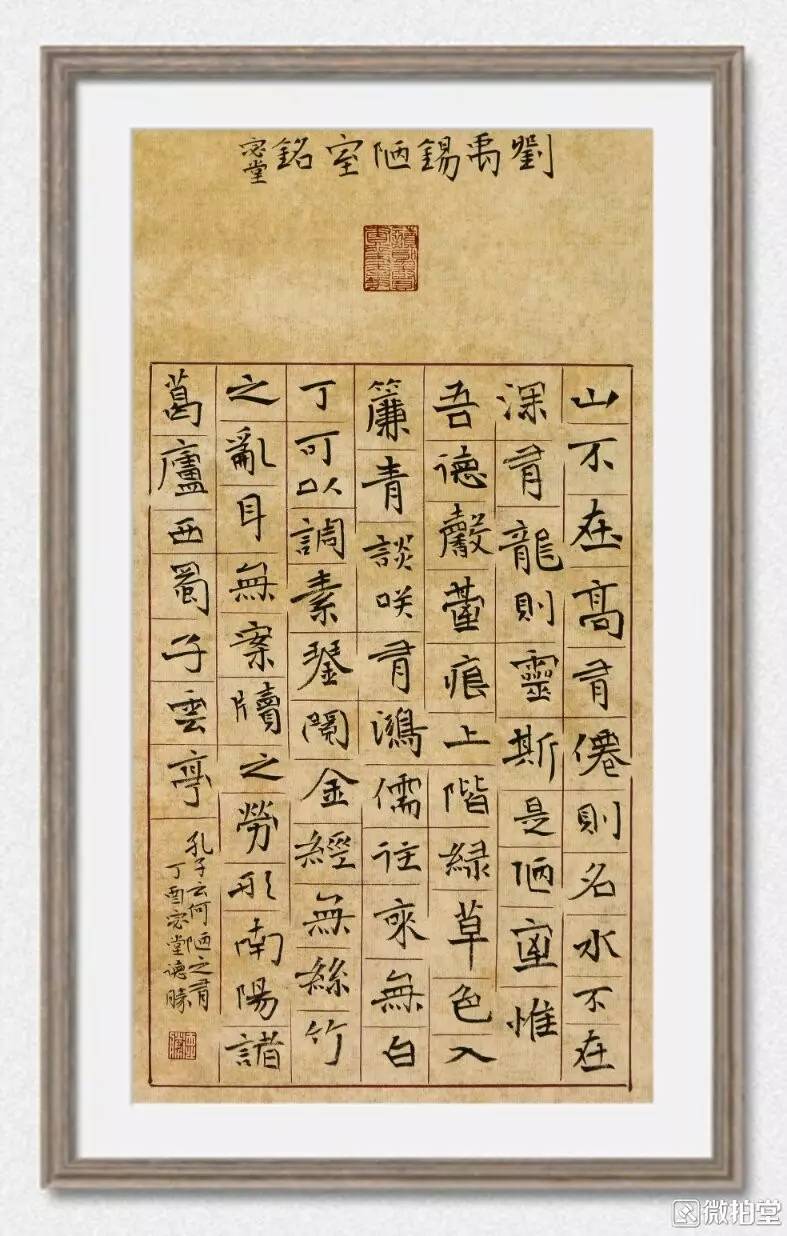 劉禹錫陋室銘
宓堂
山不在高有僊則名水不在
深有龍則靈斯是陋室惟
吾德馨薹痕上階緑草色入
簾青談咲有鴻儒往來無白
丁可以調素琴閱金經無絲竹
之亂耳無案牘之勞形南陽諸
葛廬西蜀子雲亭
孔子云何陋之有
丁酉宓堂德
微拍堂